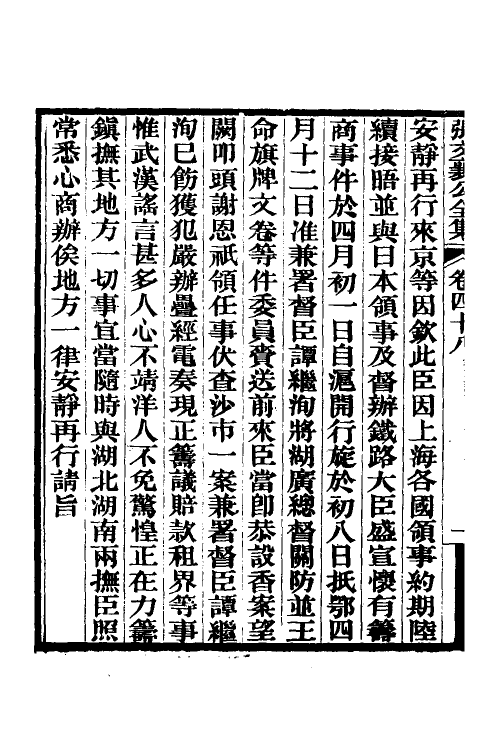 張文襄公全集 卷四十八 一
安靜再行來京等因欽此臣因上海各國領事約期陸
續接晤並與日本領事及督辦鐵路大臣盛宣懷有籌
商事件於四月初一日自滬開行旋於初八日抵鄂四
月十二日准兼署督臣譚繼洵將湖廣總督關防並王
命旗牌文卷等件委員賫送前來臣當卽恭設香案望
闕叩頭謝恩祇領任事伏查沙市一案兼署督臣譚繼
洵已飭獲犯嚴辦疊經電奏現正籌議賠款租界等事
惟武漢謠言甚多人心不靖洋人不免驚惶正在力籌
鎭撫其地方一切事宜當隨時與湖北湖南兩撫臣照
常悉心商辦俟地方一律安靜再行請旨